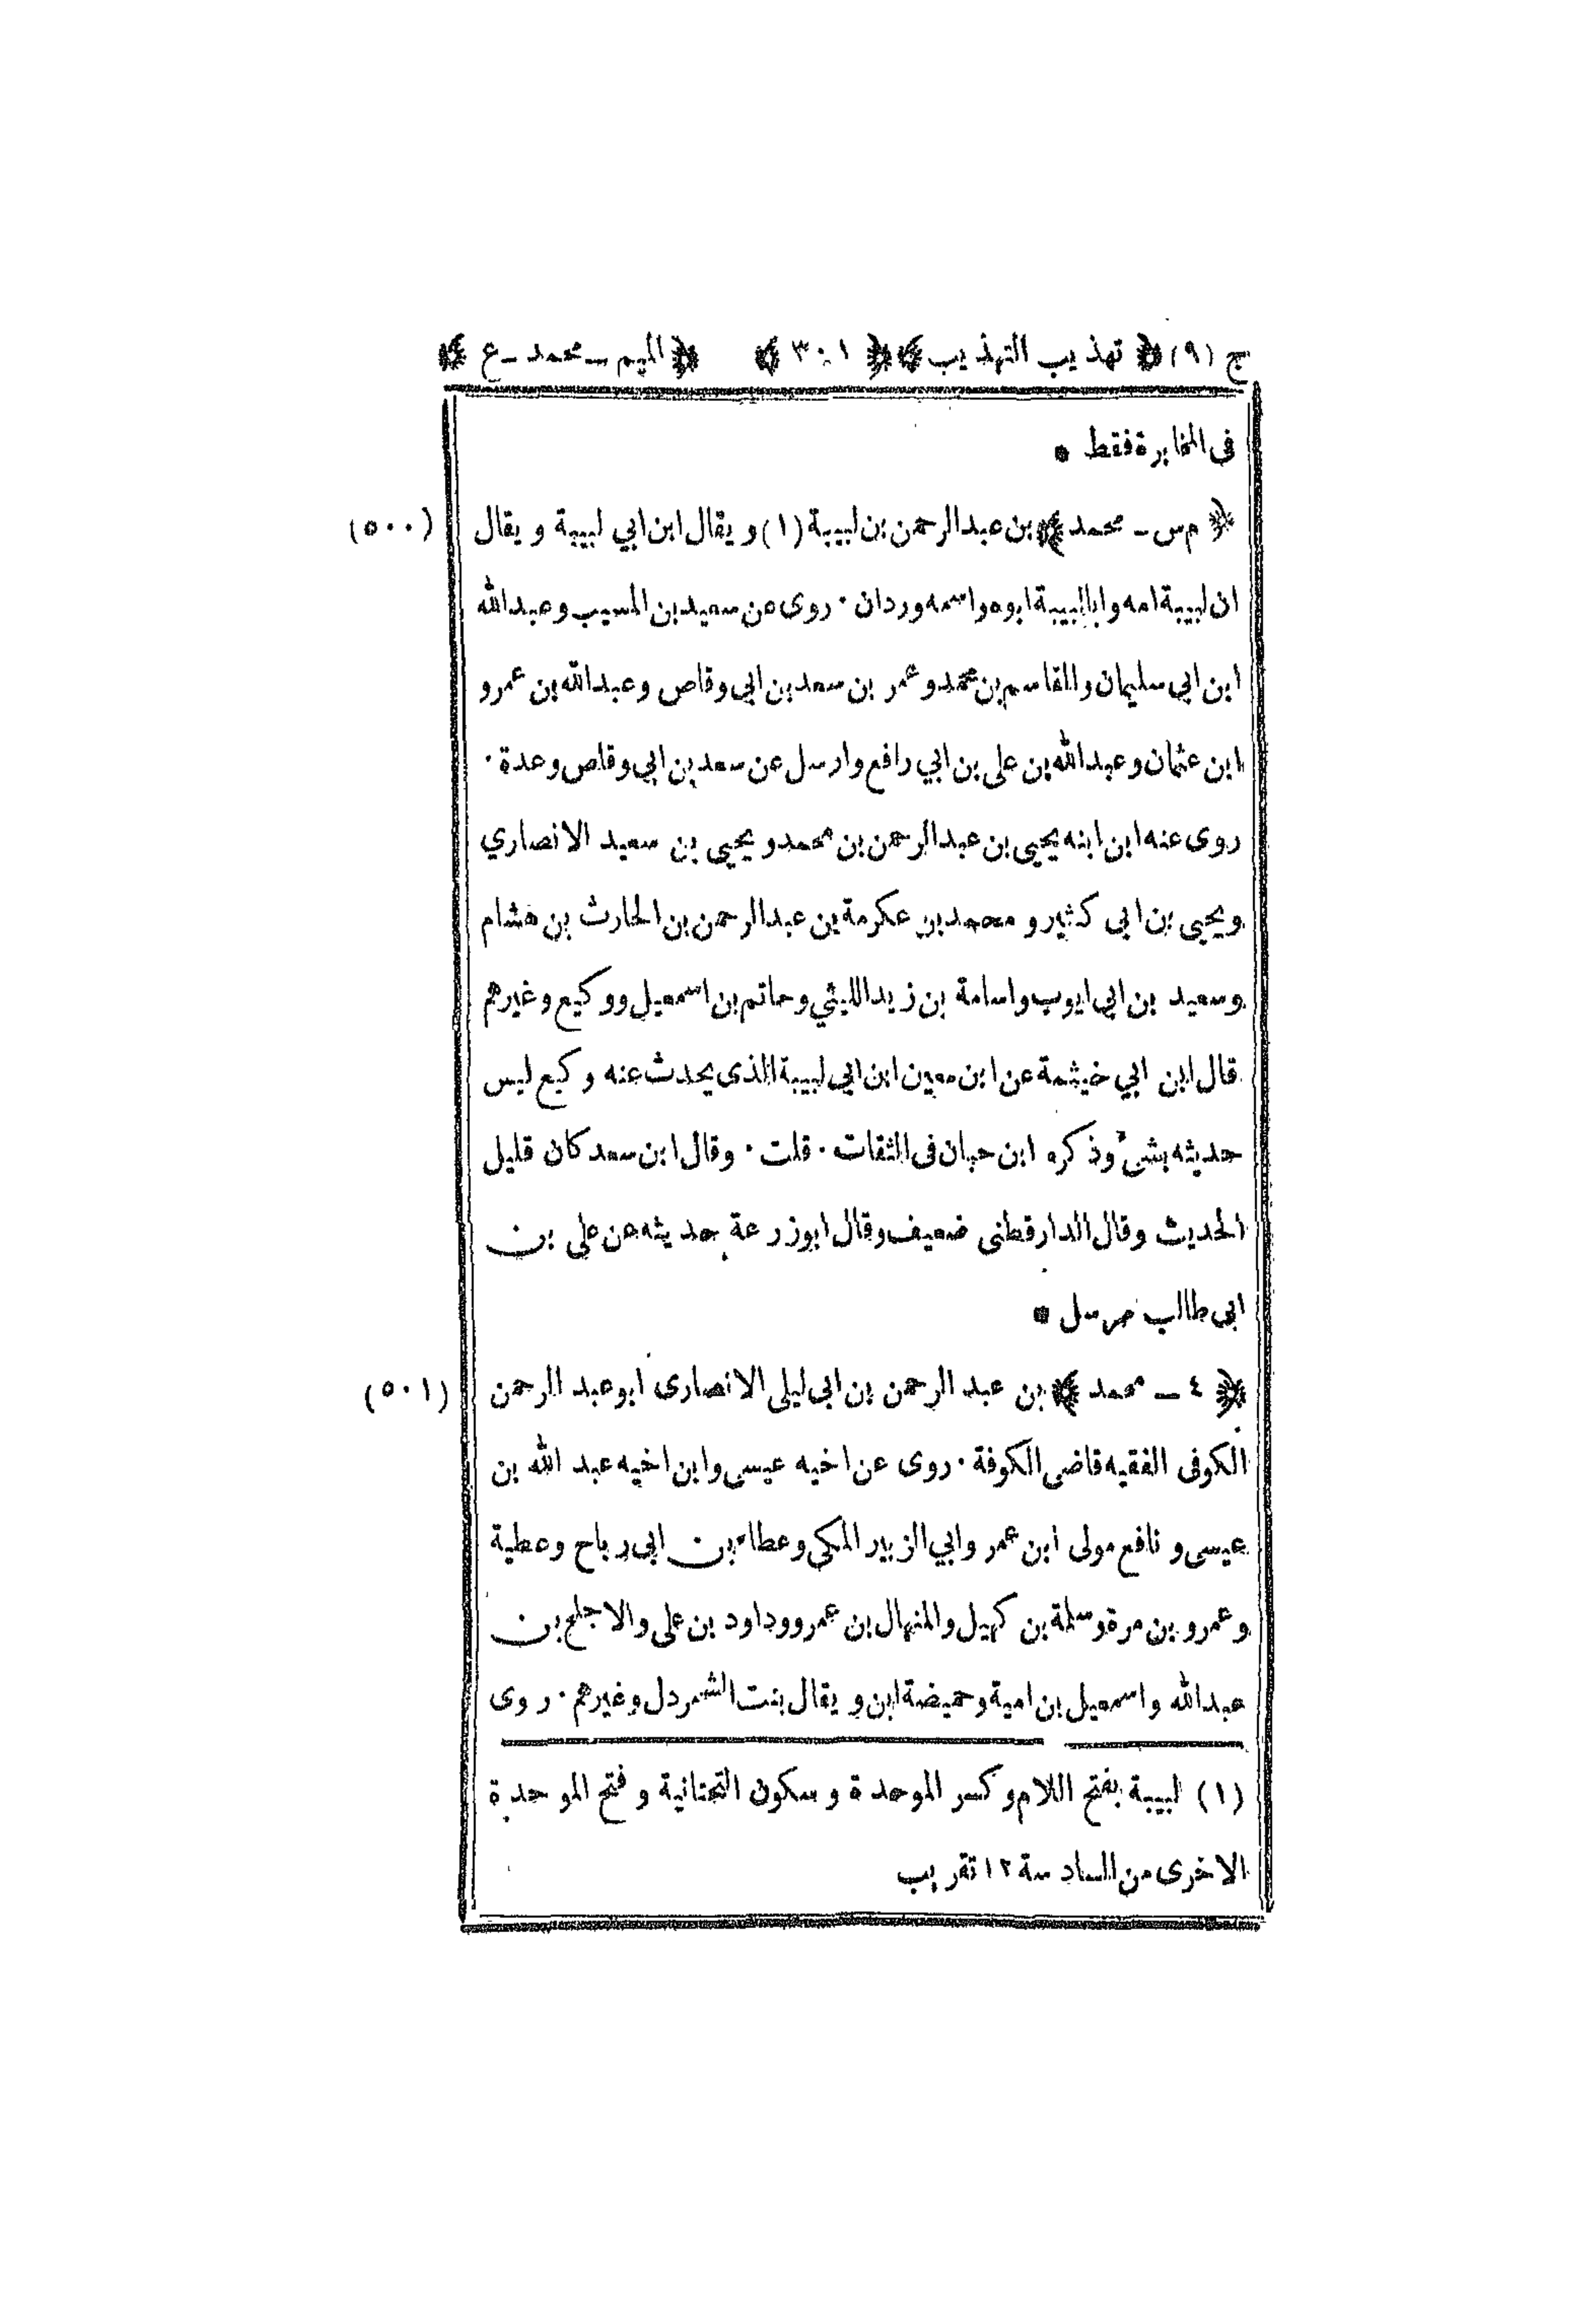 ج (٩) ﴿ تهذيب التهذيب ﴾ ﴿ ٣٠١ ﴾ ﴿ الميم ـ محمد ـ ع ﴾
فى المخابرة فقط *
﴿ م س ـ محمد ﴾ بن عبدالرحمن بن لبيبة (١) ويقال ابن ابي لبيبة ويقال (٥٠٠)
ان لبيبة امه وابا لبيبة ابوه واسمه وردان · روى عن سعيد بن المسيب وعبدالله
ابن ابي سليمان والقاسم بن محمد وعمر بن سعد بن ابي وقاص وعبدالله بن عمرو
ابن عثمان وعبدالله بن على بن ابي رافع وارسل عن سعد بن ابي وقاص وعدة ·
روى عنه ابن ابنه يحيى بن عبدالرحمن بن محمد ويحيى بن سعيد الانصاري
ويحيى بن ابى كثير ومحمد بن عكرمة بن عبدالرحمن بن الحارث بن هشام
وسعيد بن ابى ايوب واسامة بن زيد الليثي وحاتم بن اسمعيل ووكيع وغيرهم
قال ابن ابي خيثمة عن ابن معين ابن ابى لبيبة الذى يحدث عنه وكيع ليس
حديثه بشىٔ وذكره ابن حبان فى الثقات · قلت · وقال ابن سعد كان قليل
الحديث وقال الدارقطنى ضعيف وقال ابوزرعة حديثه عن على بن
ابى طالب مرسل *
﴿ ٤ ـ محمد ﴾ بن عبد الرحمن بن ابى ليلى الانصارى ابو عبد الرحمن (٥٠١)
الكوفى الفقيه قاضى الكوفة · روى عن اخيه عيسى وابن اخيه عبد الله بن
عيسى و نافع مولى ابن عمر وابي الزبير المكى وعطاء بن ابى رباح وعطية
وعمرو بن مرة وسلمة بن كهيل والمنهال بن عمرو وداود بن على والاجلح بن
عبدالله واسمعيل بن امية وحميضة ابن ويقال بنت الشمردل وغيرهم · روى
(١) لبيبة بفتح اللام وكسر الموحدة وسكون التحتانية وفتح الموحدة
الاخرى من السادسة ١٢ تقريب